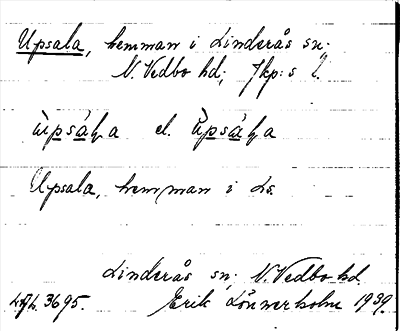 Upsala, hemman i Linderås sn;
N. Vedbo hd; Jkp:s l.
el.
Upsala, hemman i Ls
Linderås sn; N. Vedbo hd.
3695. Erik Lönnerholm 1939.